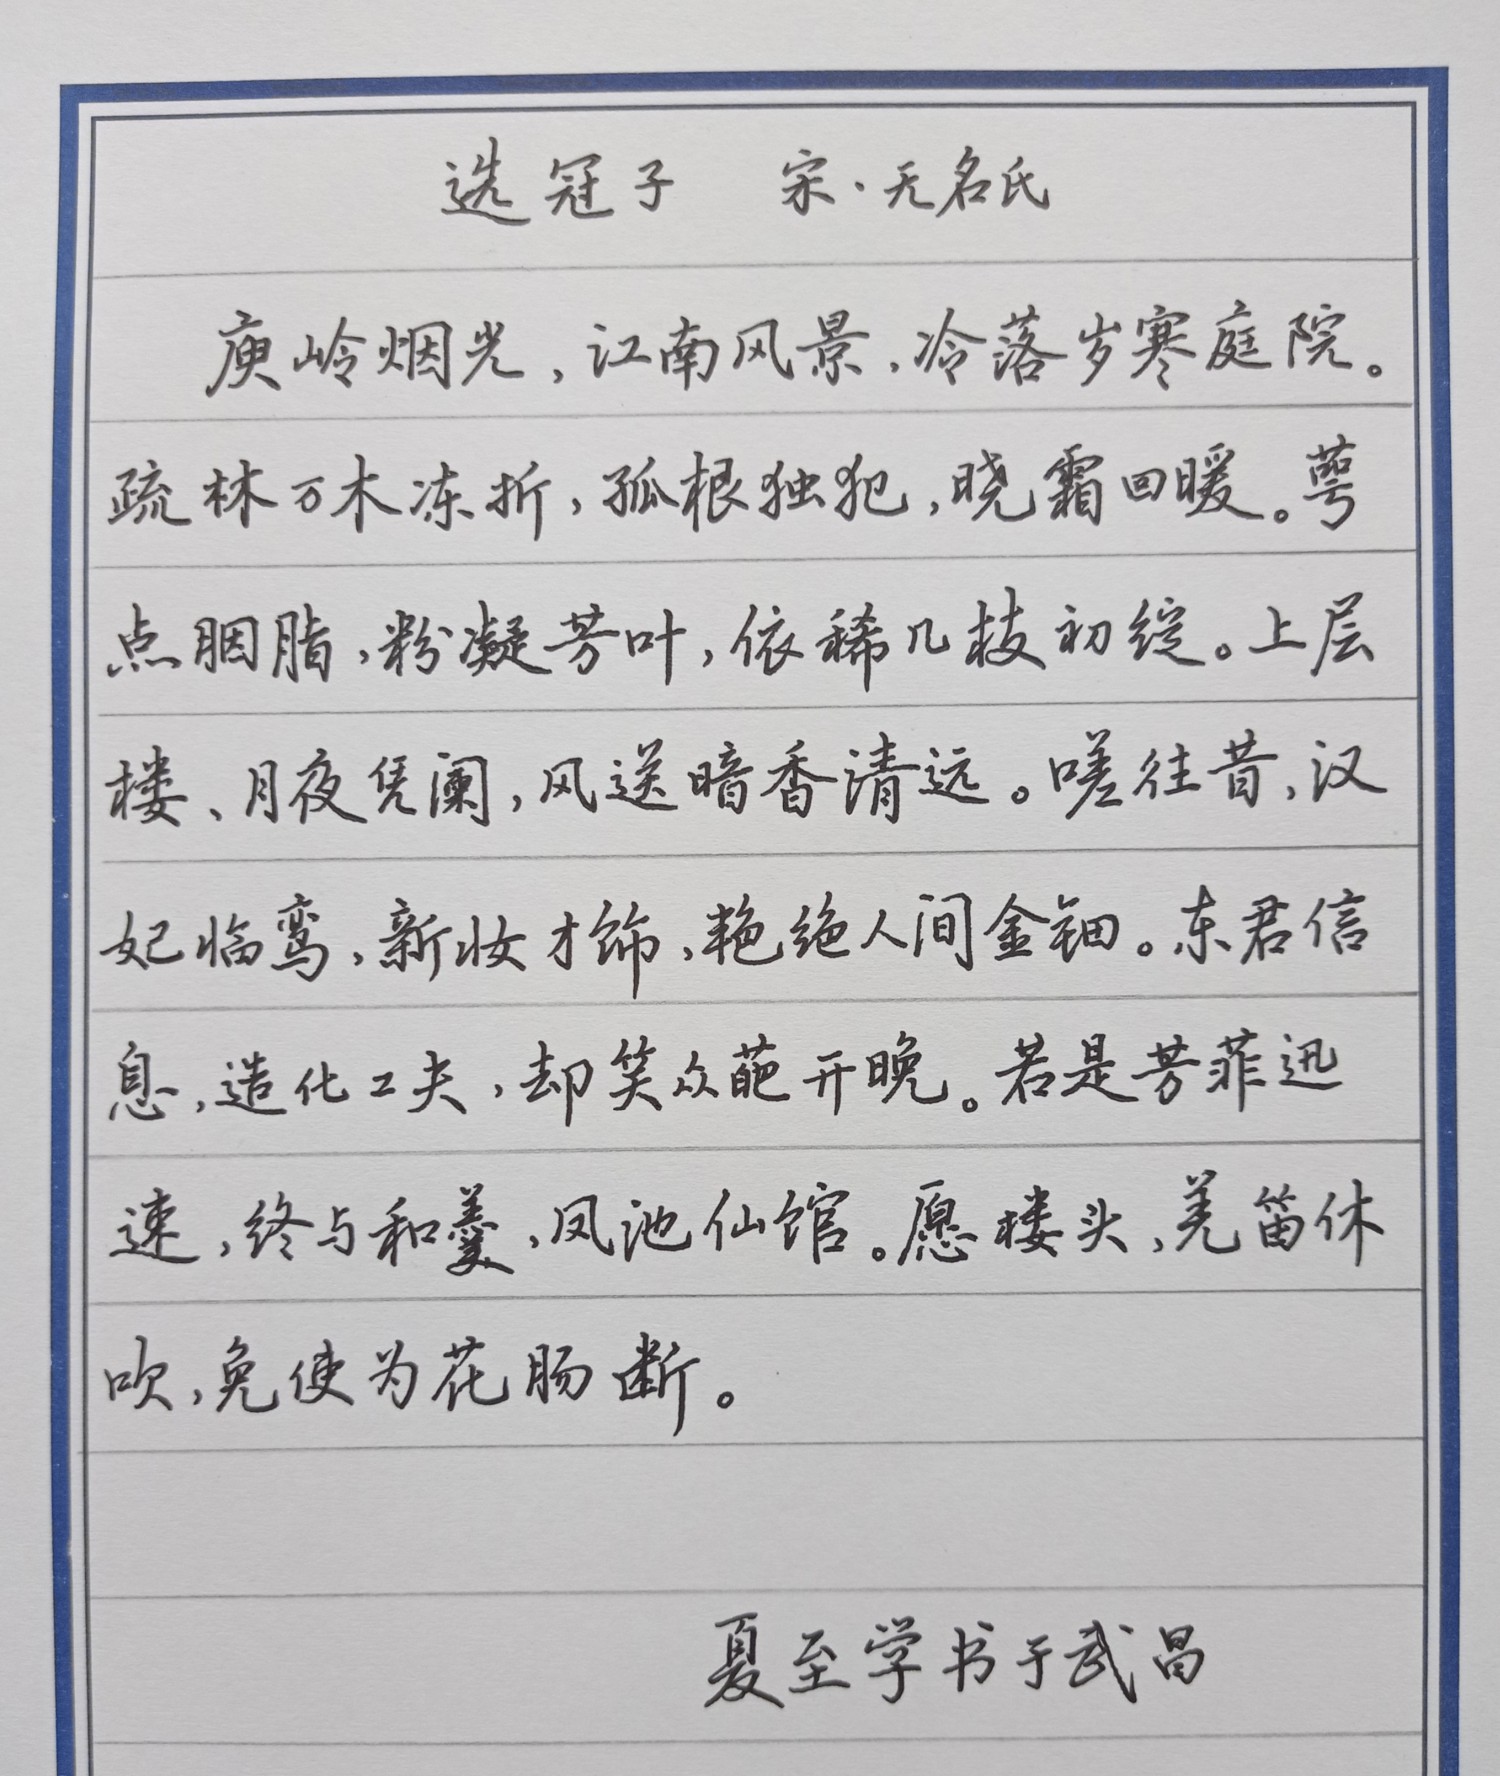 选冠子 宋·无名氏
庾岭烟光，江南风景，冷落岁寒庭院。
疏林万木冻折，孤根独犯，晓霜回暖。萼
点胭脂，粉凝芳叶，依稀几枝初绽。上层
楼、月夜凭阑，风送暗香清远。嗟往昔，汉
妃临鸾，新妆才饰，艳绝人间金钿。东君信
息，造化工夫，却笑众葩开晚。若是芳菲迅
速，终与和羹，凤池仙馆。愿楼头，羌笛休
吹，免使为花肠断。
夏至学书于武昌